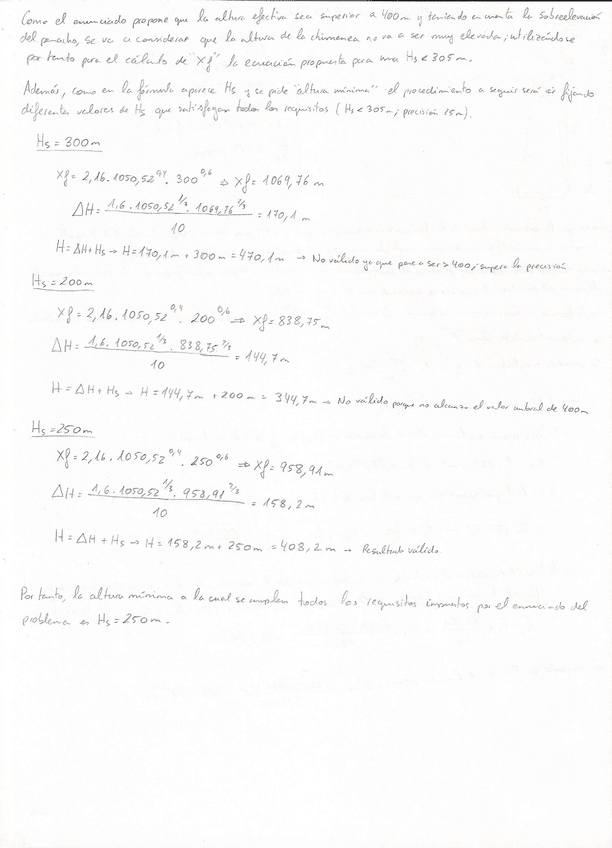 Como el enunciado propone que la altura efectiva sea superior a 400m y teniendo en cuenta la sobreelevación
del penacho, se va a considerar que la altura de la chimenea no va a ser muy elevada; utilizándose
por tanto para el cálculo de "Xf" la ecuación propuesta para una Hs < 305 m.
Además, como en la fórmula aparece Hs y se pide "altura mínima" el procedimiento a seguir será ir fijando
diferentes valores de Hs que satisfagan todos los requisitos (Hs < 305m; precisión 25m).
Hs = 300m
Xf = 2,16 · 1050,52^0,4 · 300^0,6 ⇒ Xf = 1069,76 m
ΔH = (1,6 · 1050,52^1/3 · 1069,76^2/3) / 10 = 170,1 m
H = ΔH + Hs → H = 170,1m + 300m = 470,1m → No válido ya que pese a ser > 400, supera la precisión
Hs = 200m
Xf = 2,16 · 1050,52^0,4 · 200^0,6 ⇒ Xf = 838,75m
ΔH = (1,6 · 1050,52^1/3 · 838,75^2/3) / 10 = 144,7m
H = ΔH + Hs → H = 144,7m + 200m = 344,7m → No válido porque no alcanza el valor umbral de 400m
Hs = 250m
Xf = 2,16 · 1050,52^0,4 · 250^0,6 ⇒ Xf = 958,91m
ΔH = (1,6 · 1050,52^1/3 · 958,91^2/3) / 10 = 158,2m
H = ΔH + Hs → H = 158,2m + 250m = 408,2m → Resultado válido.
Por tanto, la altura mínima a la cual se cumplen todos los requisitos impuestos por el enunciado del
problema es Hs = 250m.